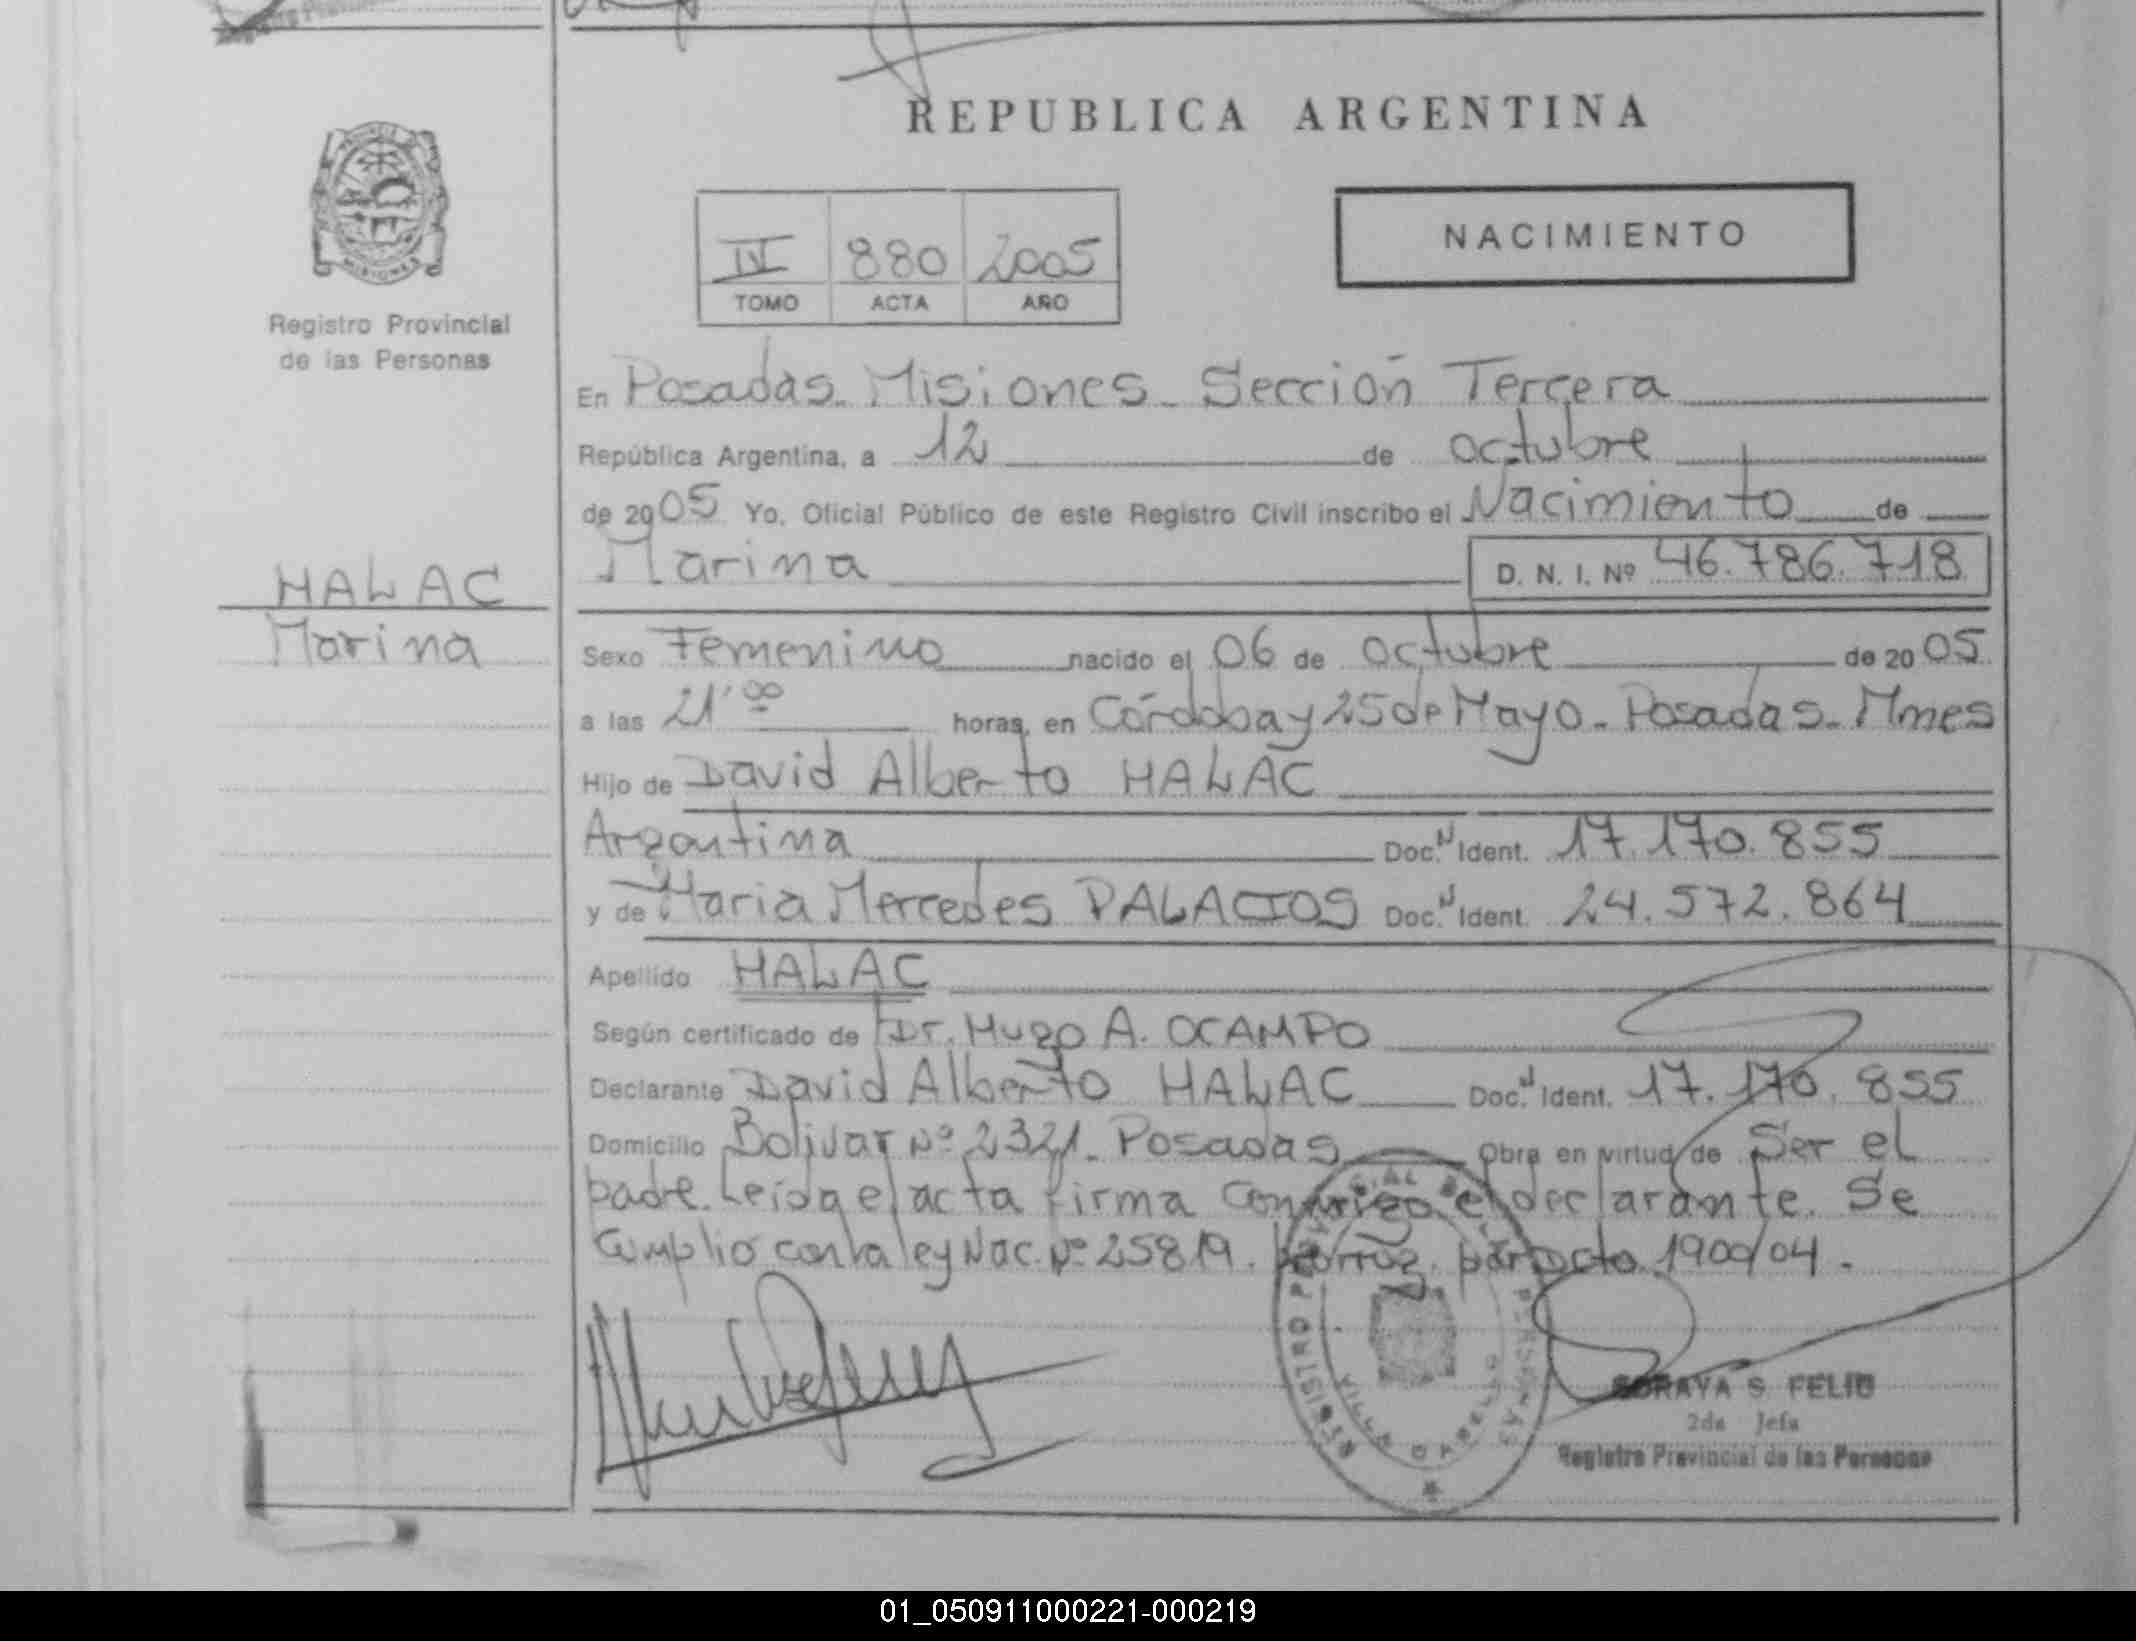 REPUBLICA ARGENTINA
NACIMIENTO
IV 880 2005
TOMO ACTA AÑO
MISIONES
Registro Provincial
de las Personas
En Posadas. Misiones. Sección Tercera
República Argentina, a 12 de octubre
de 2005 Yo, Oficial Público de este Registro Civil inscribo el Nacimiento de
Marina D. N. I. Nº 46.786.718
HALAC
Marina
Sexo Femenino nacido el 06 de octubre de 2005
a las 21'00 horas, en Córdoba y 25 de Mayo. Posadas. Mnes
Hijo de David Alberto HALAC
Argentina Doc. N Ident. 17.170.855
y de Maria Mercedes PALACIOS Doc. N Ident. 24.572.864
Apellido HALAC
Según certificado de Dr. Hugo A. OCAMPO
Declarante David Alberto HALAC Doc. N Ident. 17.170.855
Domicilio Bolivar Nº 2321. Posadas Obra en virtud de Ser el
padre. Leida el acta firma conmigo el declarante. Se
Cumplio con la ley Nac. Nº 25819. por Dcto. 1900/04.
REGISTRO PROVINCIAL DE LAS PERSONAS
VILLA CABELLO
SORAYA S. FELIU
2da Jefa
Registro Provincial de las Personas
01_050911000221-000219